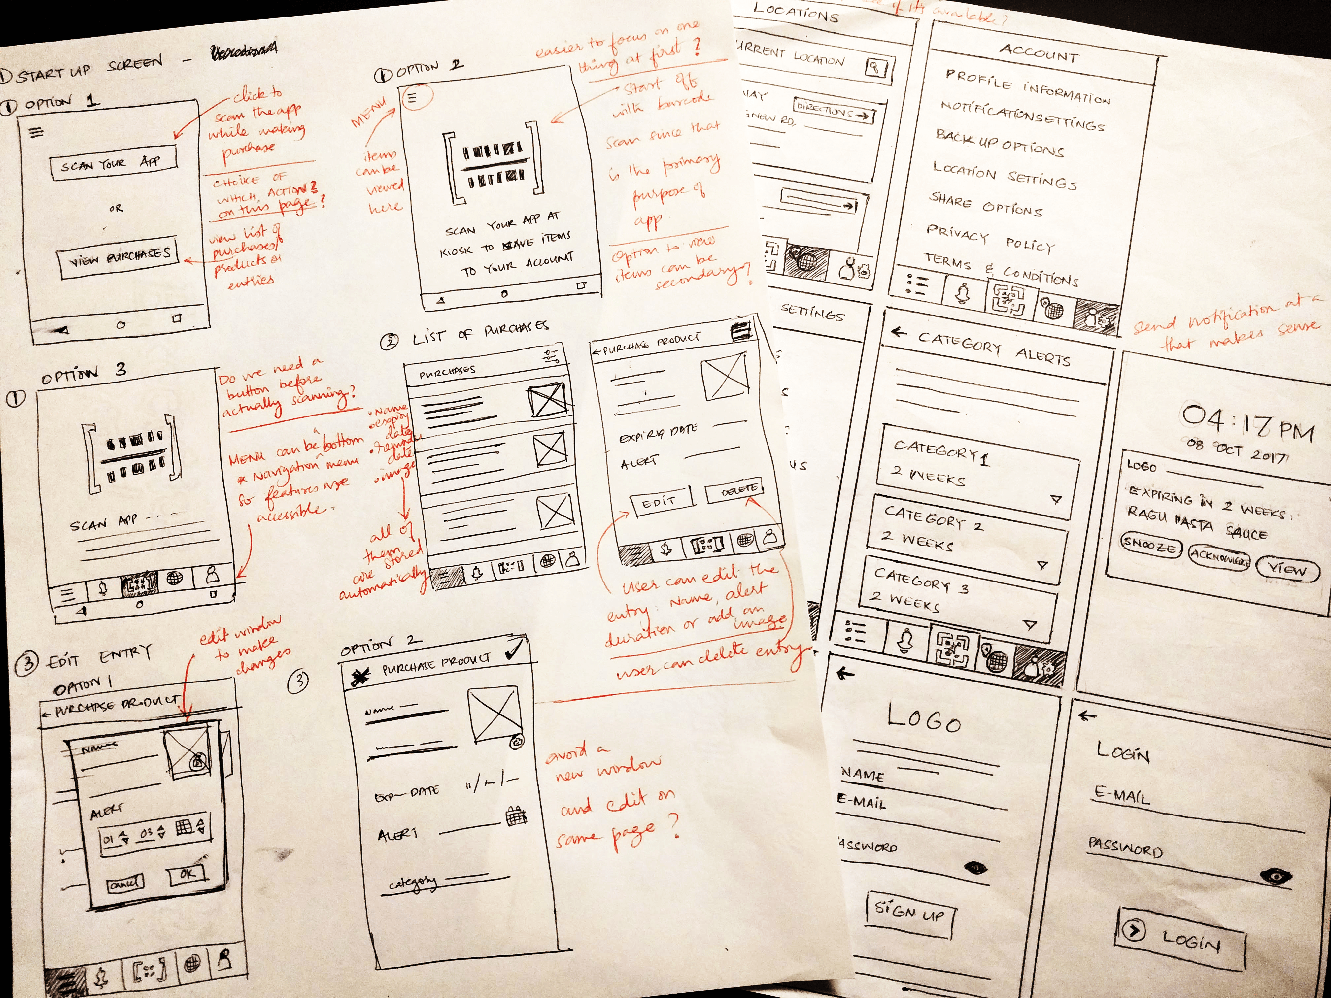 ① START UP SCREEN -
① OPTION 1
SCAN YOUR APP
OR
VIEW PURCHASES
click to
scan the app
while making
purchase
CHOICE OF
WHICH ACTION?
on this page?
view list of
purchases/
products or
entries
① OPTION 2
MENU
items
can be
viewed
here
SCAN YOUR APP AT
KIOSK TO ITEMS
TO YOUR ACCOUNT
easier to focus on one
thing at first?
Start off
with barcode
scan since that
is the primary
purpose of
app
option to view
items can be
secondary?
① OPTION 3
SCAN APP
Do we need a
button before
actually scanning?
MENU can be a bottom
Navigation menu
so features are
accessible.
② LIST OF PURCHASES
PURCHASES
• Name
• expiry
date
date
• image
all of
them
are stored
automatically
← PURCHASE PRODUCT
EXPIRY DATE
ALERT
EDIT
DELETE
User can edit the
entry: Name, alert
duration or add an
image
user can delete entry
③ EDIT ENTRY
OPTION 1
edit window
to make
changes
← PURCHASE PRODUCT
NAME
ALERT
01 03
Cancel
OK
③
OPTION 2
PURCHASE PRODUCT
Name
EXP- DATE
ALERT
category
avoid a
new window
and edit on
same page?
LOCATIONS
CURRENT LOCATION
DIRECTIONS →
RD.
SETTINGS
US
available?
ACCOUNT
PROFILE INFORMATION
NOTIFICATION SETTINGS
BACK UP OPTIONS
LOCATION SETTINGS
SHARE OPTIONS
PRIVACY POLICY
TERMS & CONDITIONS
← CATEGORY ALERTS
CATEGORY 1
2 WEEKS
CATEGORY 2
2 WEEKS
CATEGORY 3
2 WEEKS
Send notification at a
that makes sense
04:17 PM
08 OCT 2017
LOGO
EXPIRING IN 2 WEEKS:
RAGU PASTA SAUCE
SNOOZE
ACKNOWLEDGE
VIEW
←
LOGO
NAME
E-MAIL
PASSWORD
SIGN UP
←
LOGIN
E-MAIL
PASSWORD
LOGIN